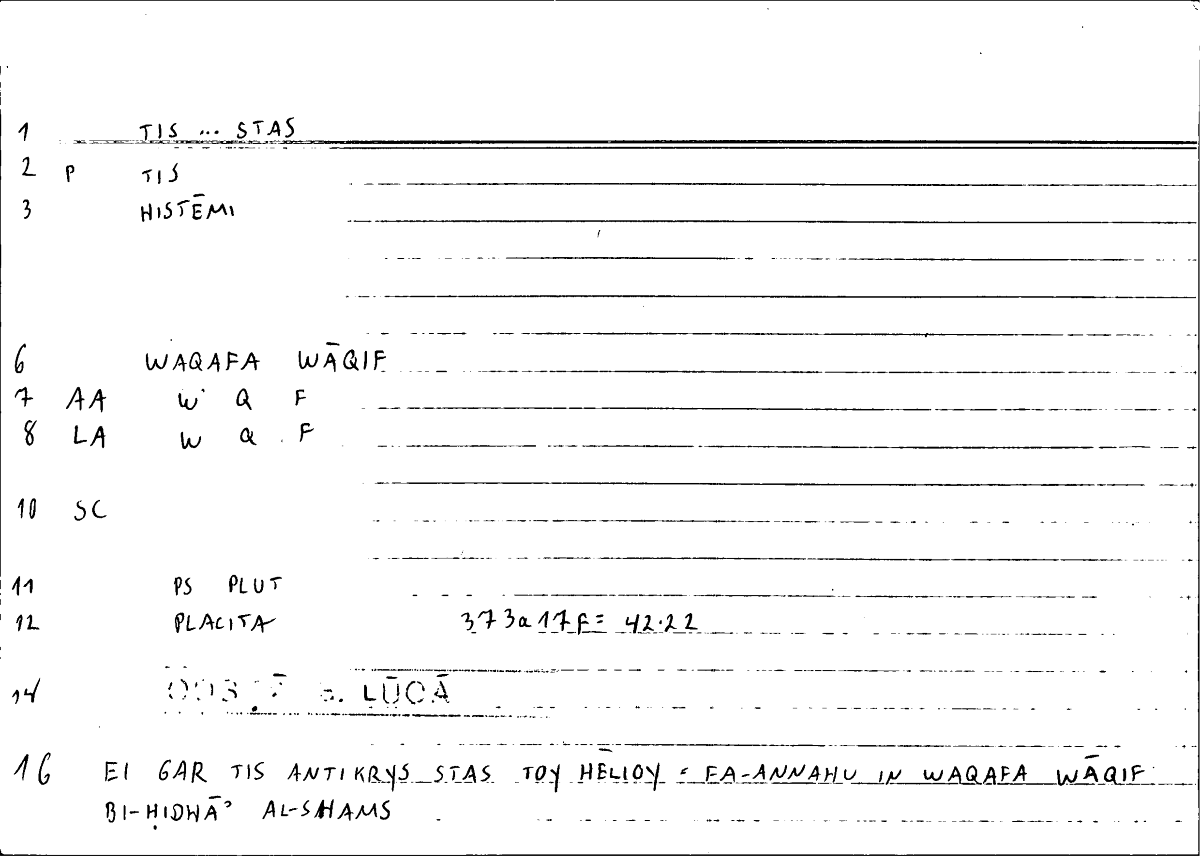 1 TIS ... STAS
2 P TIS
3 HISTĒMI
6 WAQAFA WĀQIF
7 AA W Q F
8 LA W Q F
10 SC
11 PS PLUT
12 PLACITA 373a17f = 42.22
14 LŪQĀ
16 EI GAR TIS ANTIKRYS STAS TOY HĒLIOY = FA-ANNAHU IN WAQAFA WĀQIF
BI-ḤIDWĀʾ AL-SHAMS